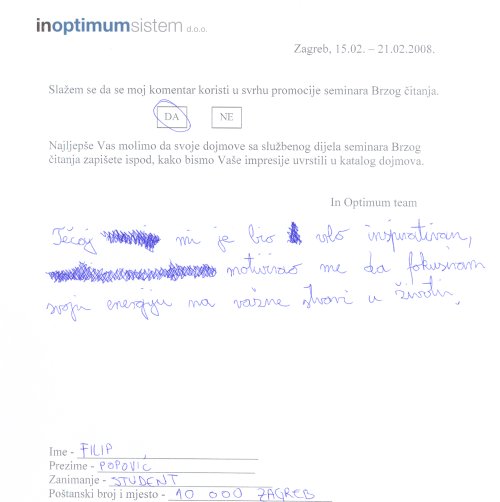 inoptimumsistem d.o.o.
Zagreb, 15.02. – 21.02.2008.
Slažem se da se moj komentar koristi u svrhu promocije seminara Brzog čitanja.
DA NE
Najljepše Vas molimo da svoje dojmove sa službenog dijela seminara Brzog
čitanja zapišete ispod, kako bismo Vaše impresije uvrstili u katalog dojmova.
In Optimum team
Tečaj mi je bio vlo inspirativan,
motivirao me da fokusiram
svoju energiju na važne stvari u životu.
Ime - FILIP
Prezime - POPOVIĆ
Zanimanje - STUDENT
Poštanski broj i mjesto - 10 000 ZAGREB